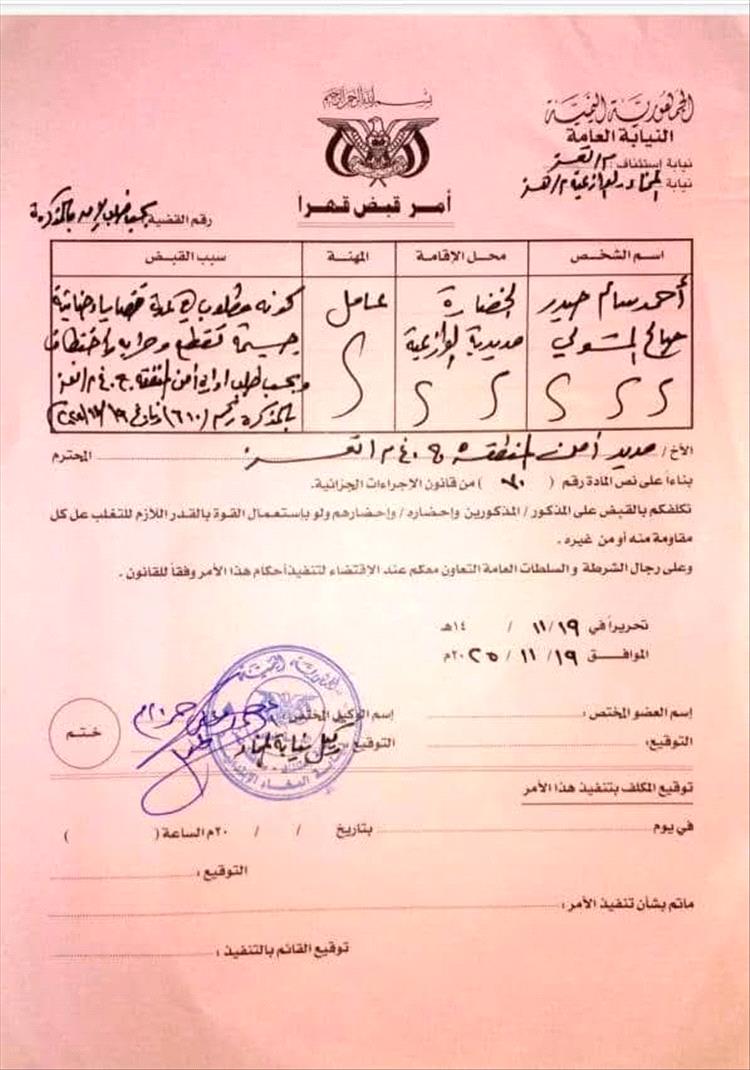 بسم الله الرحمن الرحيم
الجمهورية اليمنية
النيابة العامة
نيابة إستئناف م/تعز
نيابة المخاء والوازعية م/تعز
أمر قبض قهراً
رقم القضية بحسب طلب الأمن بالمذكرة
اسم الشخص محل الإقامة المهنة سبب القبض
أحمد سالم حيدر الخضارة عامل كونه مطلوب في عدة قضايا جنائية
صالح المشولي مديرية الوازعية جسيمة تقطع وحرابة واختطاف
وبحسب طلب ادارة أمن
بالمذكرة رقم (٦١٠)
الأخ / مدير أمن م/تعز المحترم
بناءاً على نص المادة رقم ( ) من قانون الإجراءات الجزائية.
تكلفكم بالقبض على المذكور / المذكورين وإحضاره / وإحضارهم ولو بإستعمال القوة بالقدر اللازم للتغلب عل كل
مقاومة منه أو من غيره .
وعلى رجال الشرطة والسلطات العامة التعاون معكم عند الإقتضاء لتنفيذ أحكام هذا الأمر وفقاً للقانون .
تحريراً في ١٩/ ١١ / ١٤هـ
الموافق ١٩/ ١١ / ٢٠٢٥م
إسم العضو المختص : إسم الوكيل المختص :
التوقيع : التوقيع : وكيل نيابة المخاء
ختم
توقيع المكلف بتنفيذ هذا الأمر
في يوم بتاريخ / / ٢٠م الساعة ( )
التوقيع :
ماتم بشأن تنفيذ الأمر :
توقيع القائم بالتنفيذ :